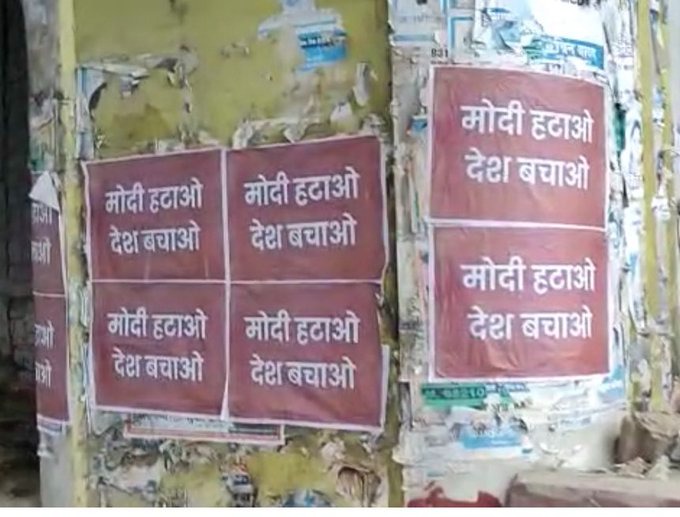 मोदी हटाओ
देश बचाओ
मोदी हटाओ
देश बचाओ
मोदी हटाओ
देश बचाओ
मोदी हटाओ
देश बचाओ
मोदी हटाओ
देश बचाओ
मोदी हटाओ
देश बचाओ